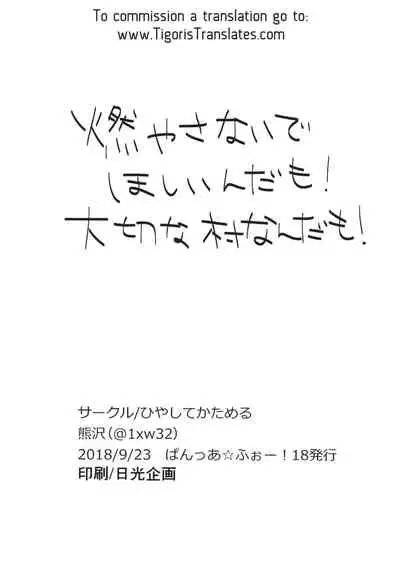 To commission a translation go to:
www.TigorisTranslates.com
燃やさないで
ほしいんだも!
大切な村なんだも!
サークル/ひやしてかためる
熊沢(@1xw32)
2018/9/23　ぱんっあ☆ふぉー!18発行
印刷/日光企画